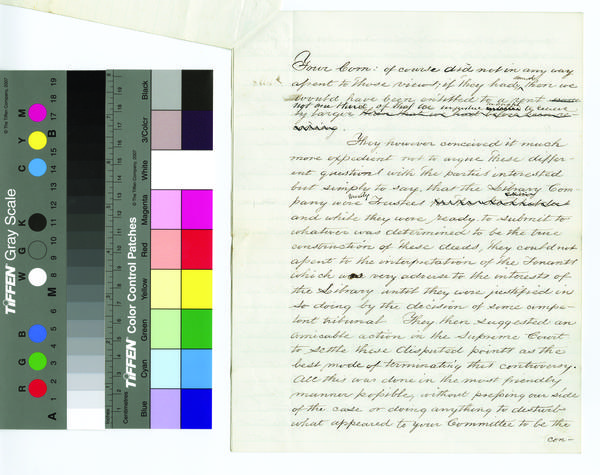 Your Com: of course did not in any way
assent to those views, if they had, then we
would have been entitled to
not one third, if they
by larger
They however conceived it much
more expedient not to argue these differ-
ent question with the parties interested
but simply to say, that the Library Com-
pany were Trustees
and while they were ready to submit to
whatever was determined to be the true
construction of these deeds, they could not
assent to the interpretation of the Tenants
which was very adverse to the interests of
the Library until they were justified in
so doing by the decision of some compe-
tent tribunal. They then suggested an
amicable action in the Supreme Court
to settle these disputed points as the
best mode of terminating this controversy.
All this was done in the most friendly
manner possible, without pressing our side
of the case or doing anything to disturb
what appeared to your Committee to be the
con-
TIFFEN Gray Scale
© The Tiffen Company, 2007
R G B W G K C Y M
A 1 2 3 4 5 6 M 8 9 10 11 12 13 14 15 B 17 18 19
TIFFEN Color Control Patches
© The Tiffen Company, 2007
Centimetres
Blue Cyan Green Yellow Red Magenta White 3/Color Black